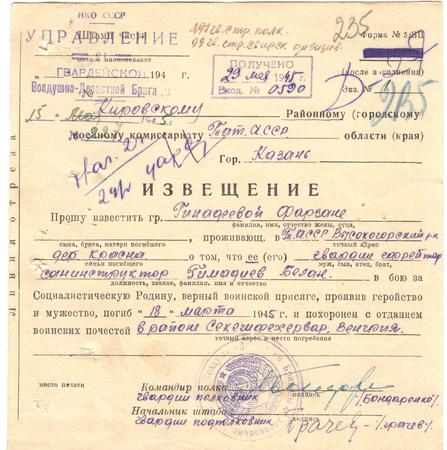 НКО СССР
Штамп части
УПРАВЛЕНИЕ
полное наименование
ГВАРДЕЙСКОЙ 194 г.
Воздушно-Десантной Бригады
№
15 Мая
297 гв. стр. полк.
99 гв. стр. свирск. дивизия.
235
Форма № 5/БП
(После заполнения)
Экз. №
925
ПОЛУЧЕНО
29 мая 45 г.
Вход. № 0590
Кировскому Районному (городскому)
военному комиссариату Тат. АССР области (края)
Гор. Казань
ИЗВЕЩЕНИЕ
Прошу известить гр. Гимадеевой Фарзоне
фамилия, имя, отчество жены, отца,
проживающ. в Т.АССР Высокогорский р-н
сына, брата, матери погибшего точный адрес
дер. Красна о том, что ее (его) гвардии ефрейтор
семьи погибшего муж, сын, отец, брат,
санинструктор Гимадиев Белон. в бою за
должность, звание, фамилия, имя и отчество
Социалистическую Родину, верный воинской присяге, проявив геройство
и мужество, погиб "18" марта 1945 г. и похоронен с отданием
воинских почестей в район Секешфехервар, Венгрия.
точный адрес и место погребения
место печати
Командир полка
гвардии полковник
подпись
/Бондаренко/
Начальник штаба
гвардии подполковник
подпись
/Грачев/
Линия отреза